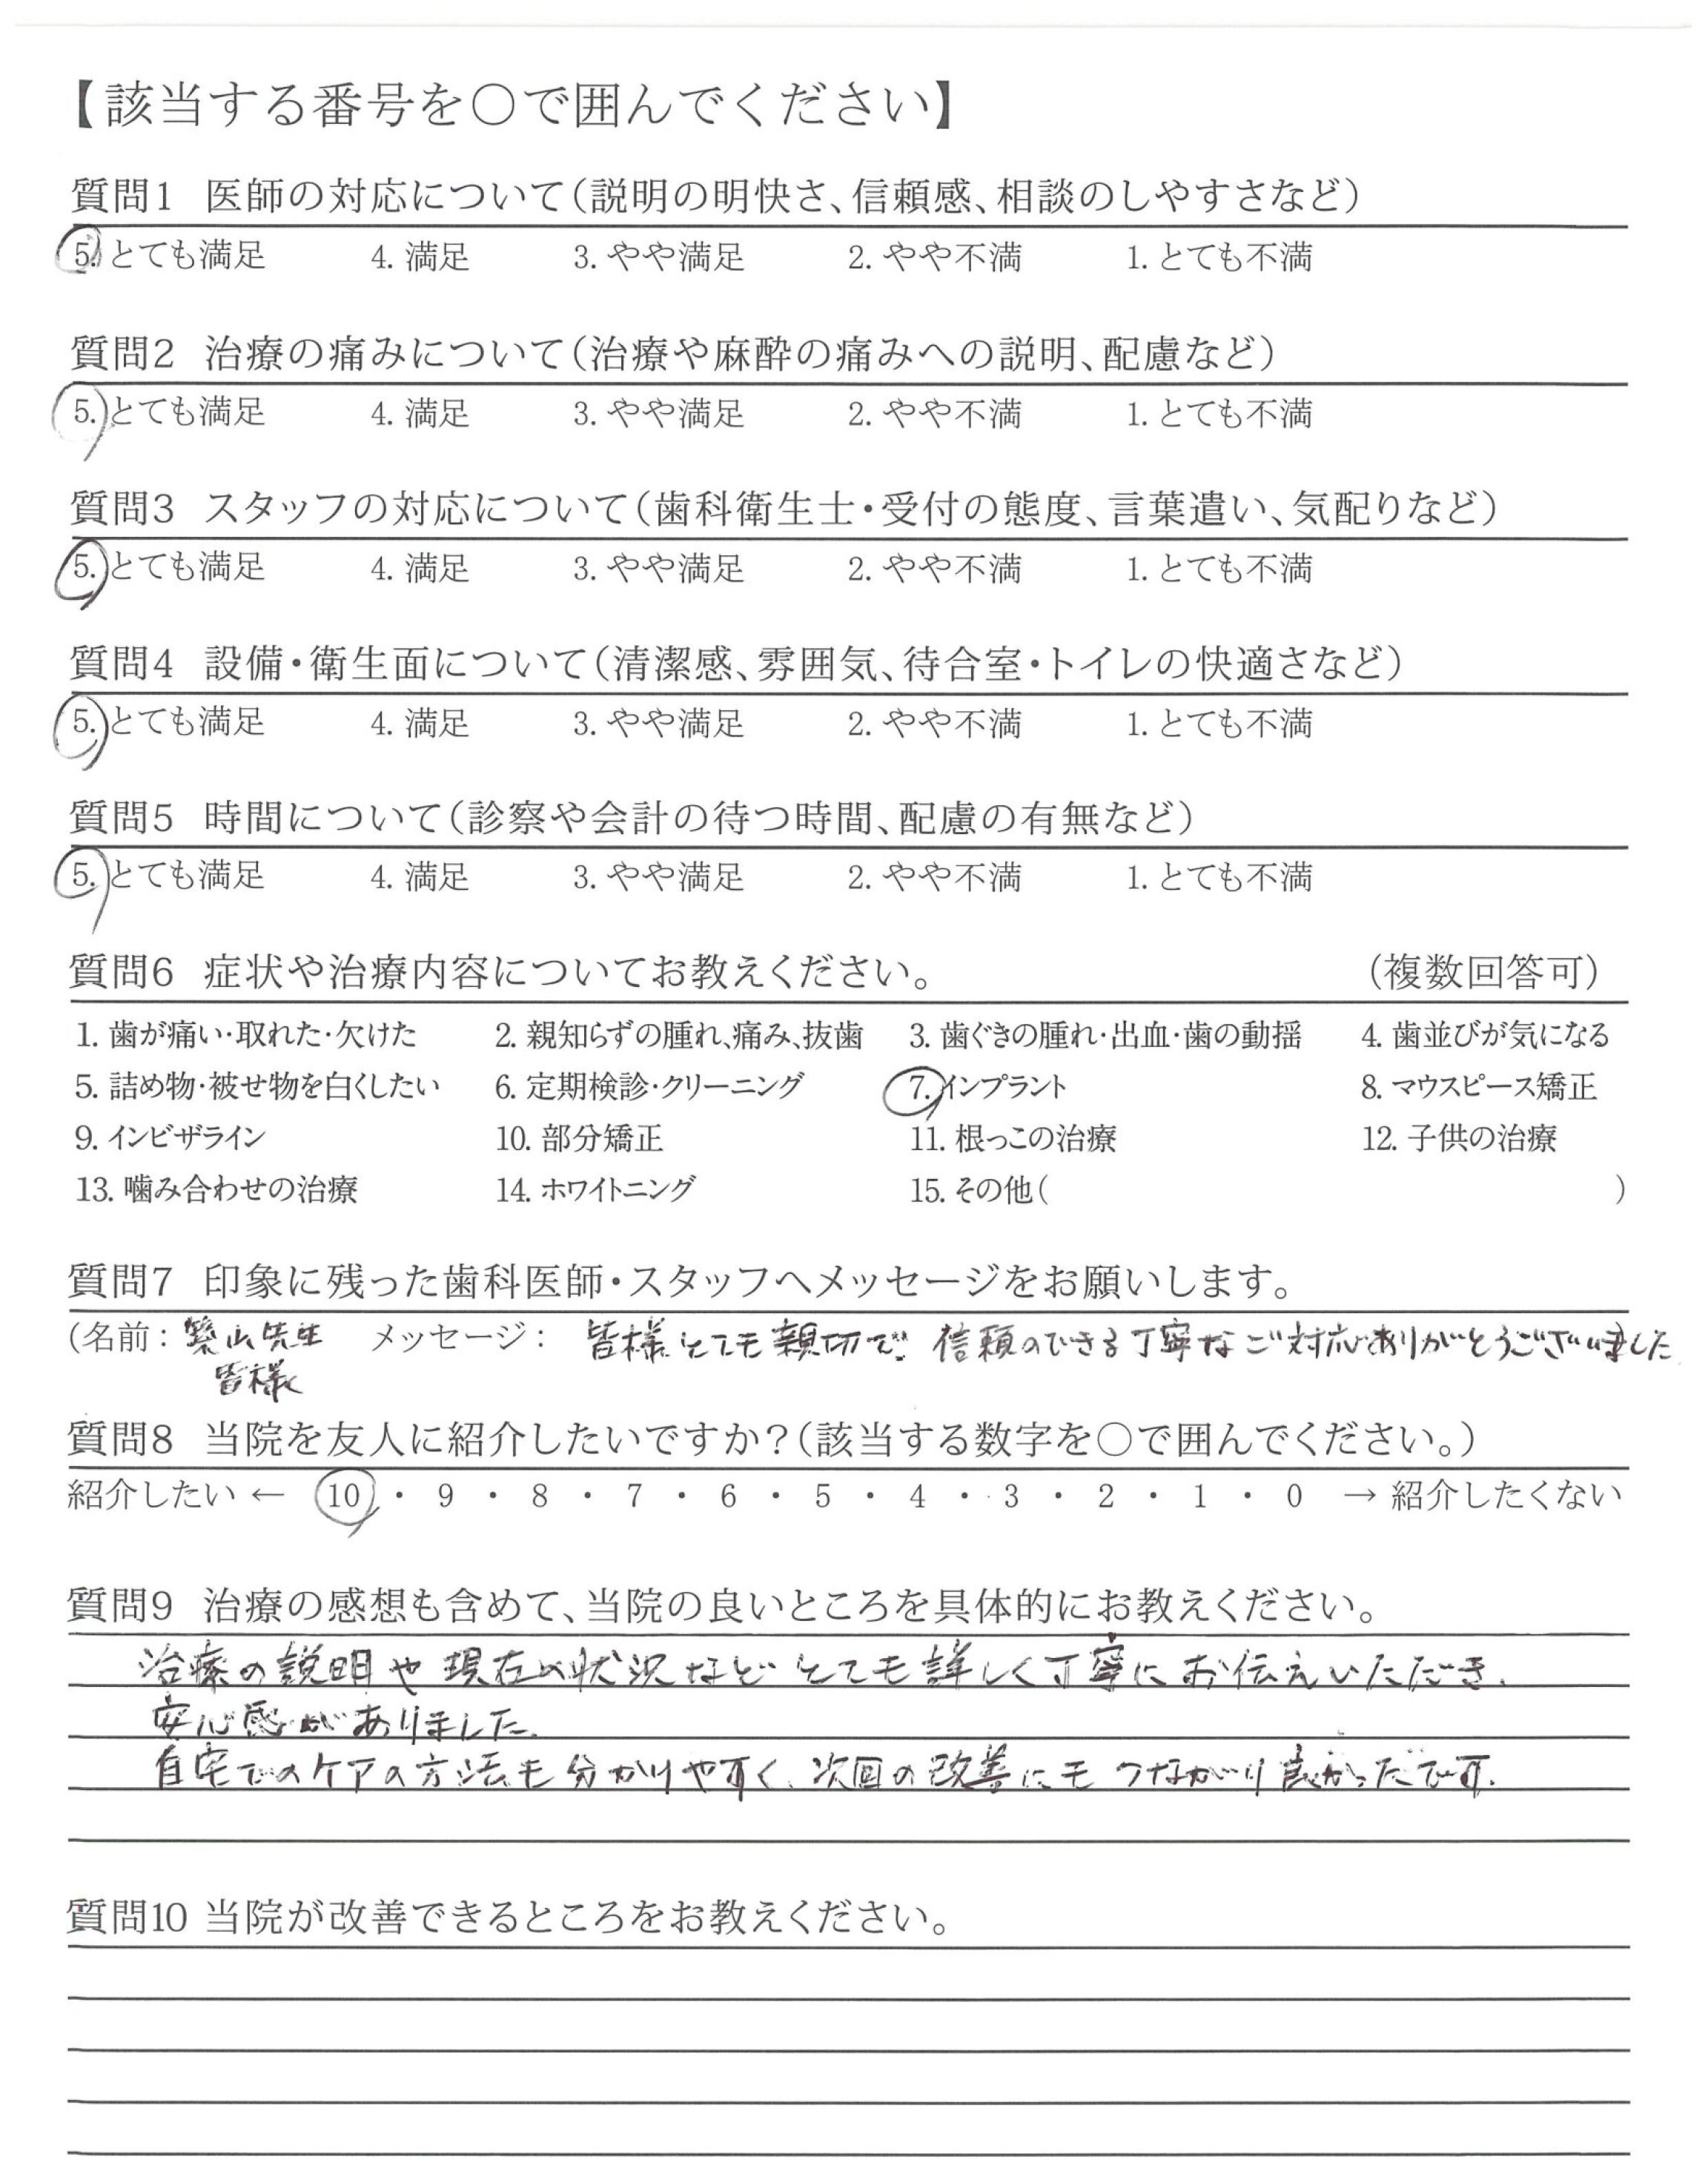 【該当する番号を○で囲んでください】
質問1 医師の対応について(説明の明快さ、信頼感、相談のしやすさなど)
5. とても満足 4. 満足 3. やや満足 2. やや不満 1. とても不満
質問2 治療の痛みについて(治療や麻酔の痛みへの説明、配慮など)
5. とても満足 4. 満足 3. やや満足 2. やや不満 1. とても不満
質問3 スタッフの対応について(歯科衛生士・受付の態度、言葉遣い、気配りなど)
5. とても満足 4. 満足 3. やや満足 2. やや不満 1. とても不満
質問4 設備・衛生面について(清潔感、雰囲気、待合室・トイレの快適さなど)
5. とても満足 4. 満足 3. やや満足 2. やや不満 1. とても不満
質問5 時間について(診察や会計の待つ時間、配慮の有無など)
5. とても満足 4. 満足 3. やや満足 2. やや不満 1. とても不満
質問6 症状や治療内容についてお教えください。 (複数回答可)
1. 歯が痛い・取れた・欠けた 2. 親知らずの腫れ、痛み、抜歯 3. 歯ぐきの腫れ・出血・歯の動揺 4. 歯並びが気になる
5. 詰め物・被せ物を白くしたい 6. 定期検診・クリーニング 7. インプラント 8. マウスピース矯正
9. インビザライン 10. 部分矯正 11. 根っこの治療 12. 子供の治療
13. 噛み合わせの治療 14. ホワイトニング 15. その他( )
質問7 印象に残った歯科医師・スタッフへメッセージをお願いします。
(名前: 築山先生 メッセージ: 皆様とても親切で 信頼のできる丁寧なご対応ありがとうございました
皆様
質問8 当院を友人に紹介したいですか?(該当する数字を○で囲んでください。)
紹介したい ← 10 ・ 9 ・ 8 ・ 7 ・ 6 ・ 5 ・ 4 ・ 3 ・ 2 ・ 1 ・ 0 → 紹介したくない
質問9 治療の感想も含めて、当院の良いところを具体的にお教えください。
治療の説明や現在の状況などとても詳しく丁寧にお伝えいただき、
安心感がありました。
自宅でのケアの方法も分かりやすく、次回の改善にもつながり良かったです。
質問10 当院が改善できるところをお教えください。